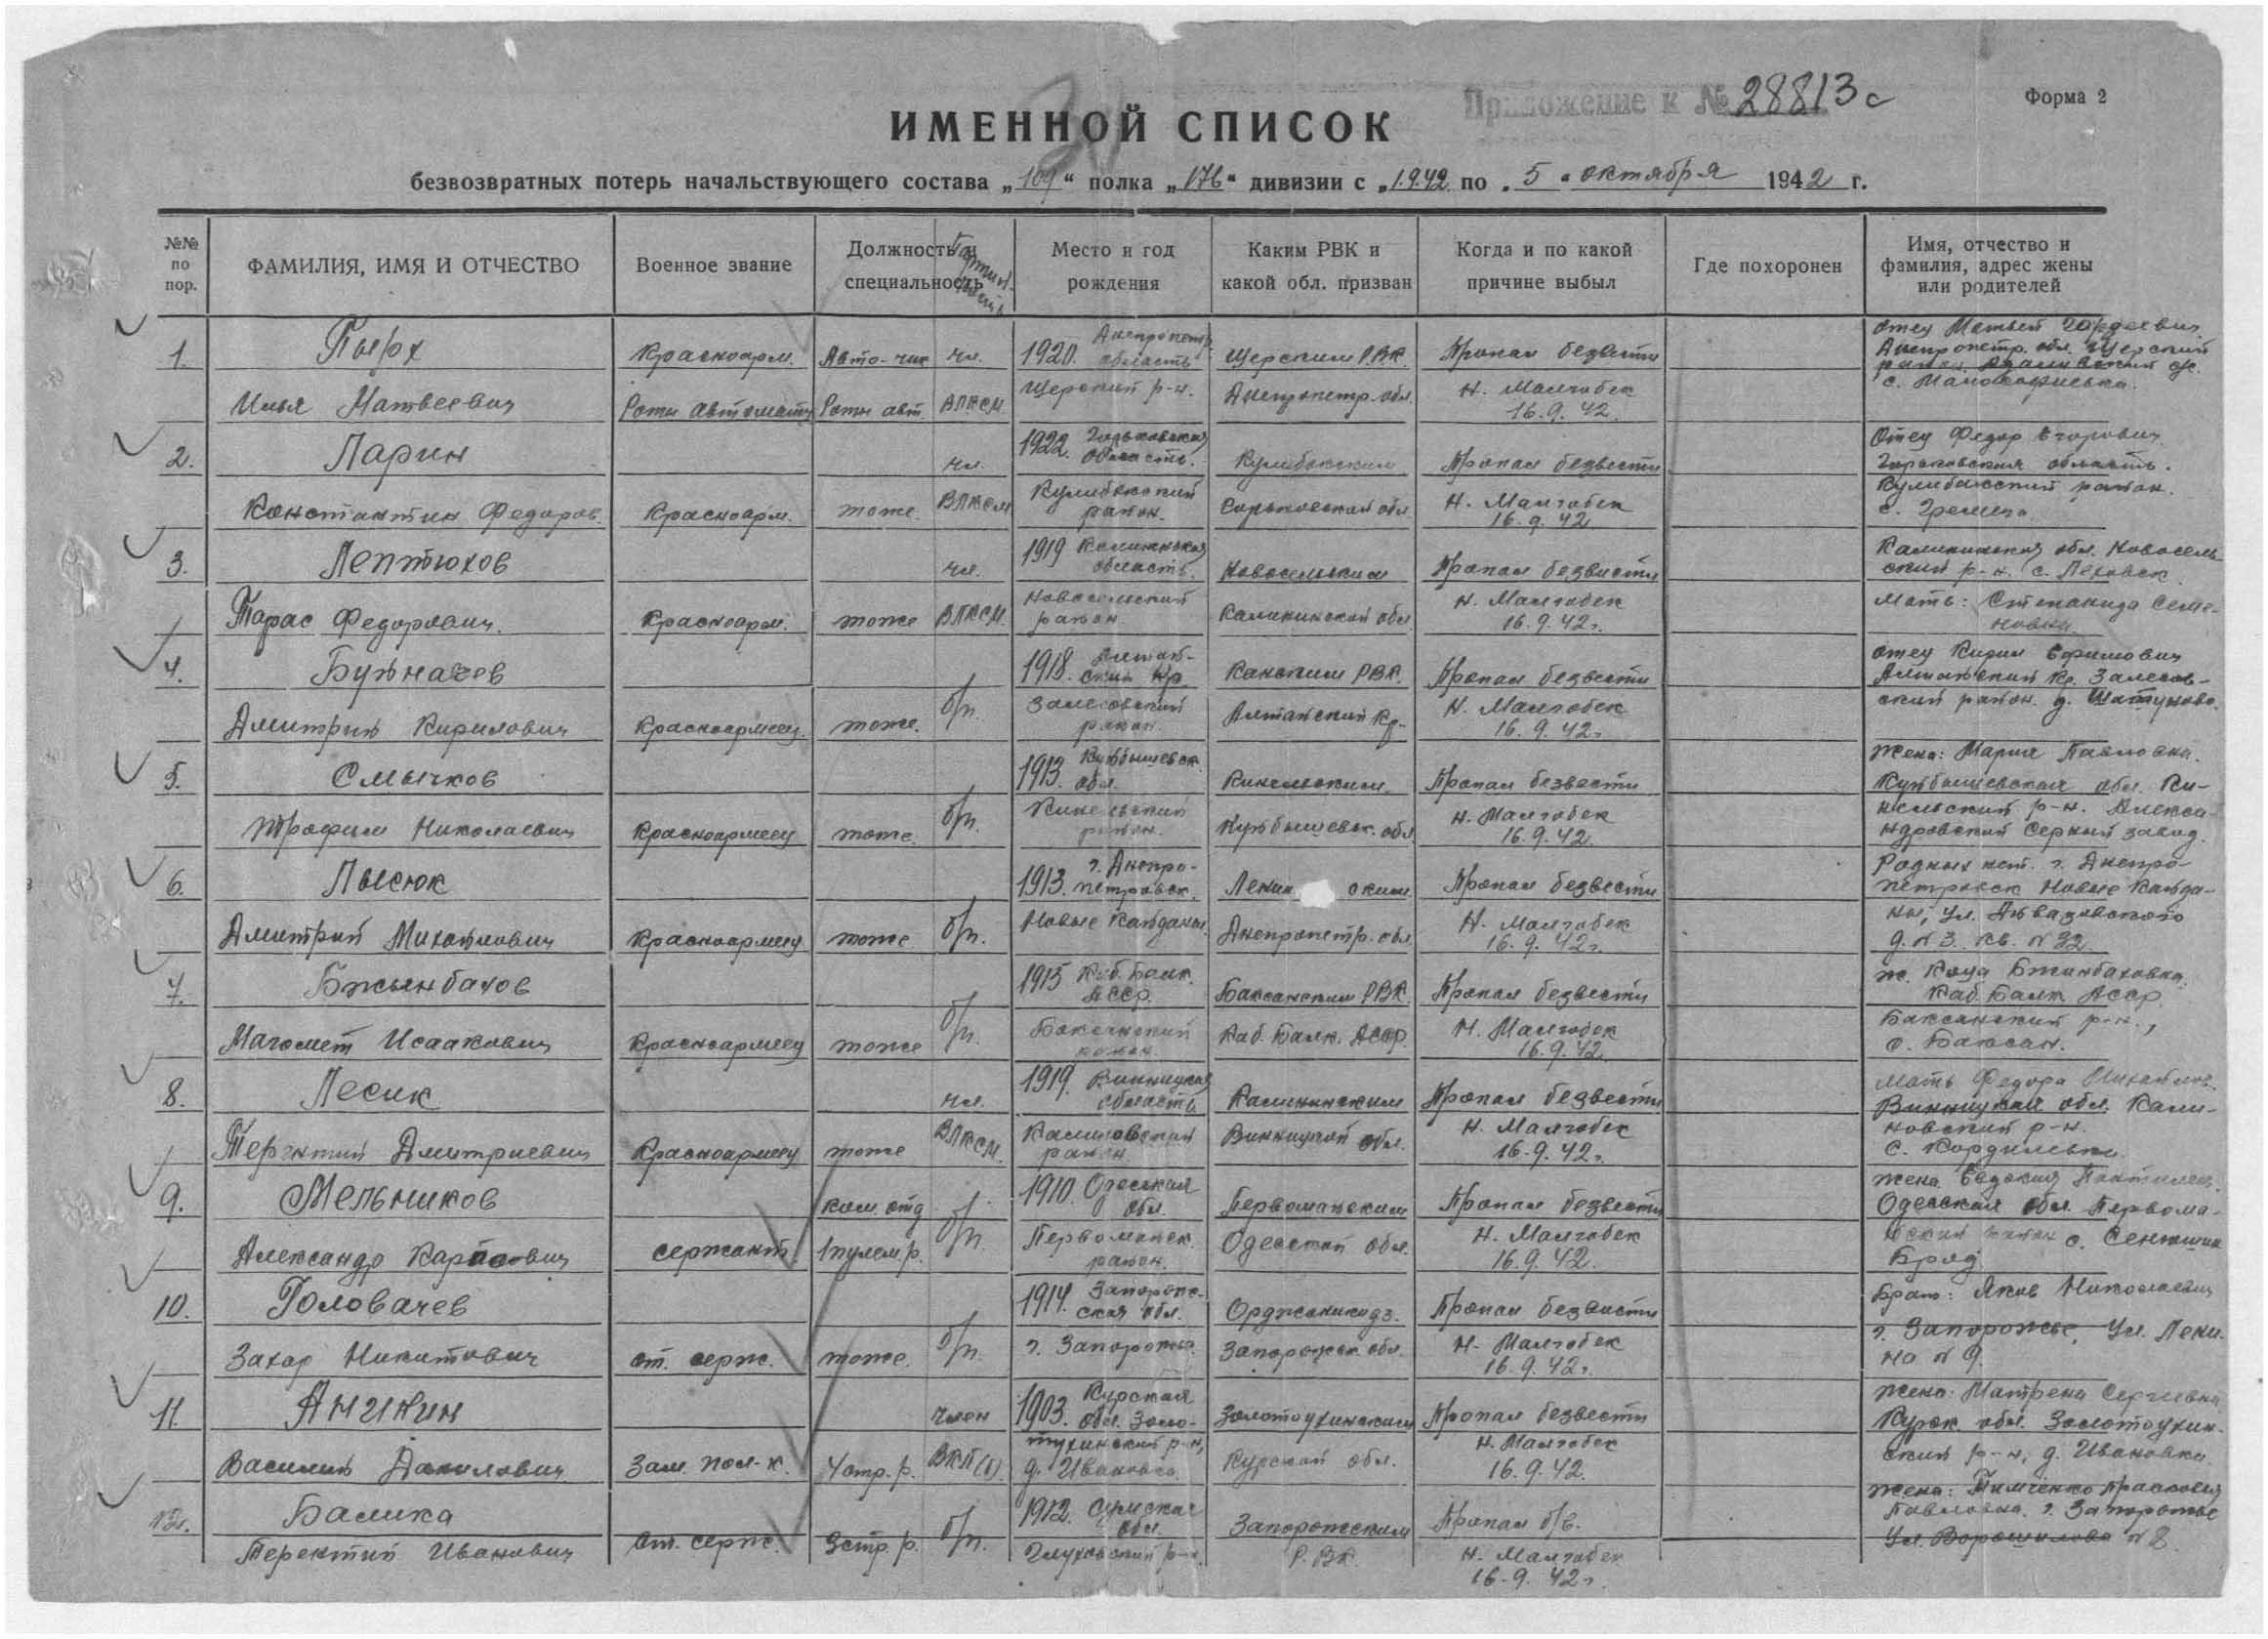 Приложение к № 28813с
Форма 2
ИМЕННОЙ СПИСОК
безвозвратных потерь начальствующего состава „109“ полка „176“ дивизии с „1.9.42 по „5“ октября 1942 г.
№№ по пор.
ФАМИЛИЯ, ИМЯ И ОТЧЕСТВО
Военное звание
Должность и специальность
Место и год рождения
Каким РВК и какой обл. призван
Когда и по какой причине выбыл
Где похоронен
Имя, отчество и фамилия, адрес жены или родителей
1.
Илья Матвеевич
Красноарм.
Роты автомат.
Авто-чик
Роты авт.
чл. ВЛКСМ
1920. Днепропетр. область
Щорский р-н.
Щорским РВК
Днепропетр. обл.
Пропал безвести
Н. Малгобек
16.9.42
отец Матвей
Днепропетр. обл. Щорский
район
с. Малософиевка.
2. Ларин
Константин Федоров.
Красноарм.
тоже
чл. ВЛКСМ
1922. Горьковская область.
Кулебакский район.
Кулебакским
Горьковской обл.
Пропал безвести
Н. Малгобек
16.9.42
Отец Федор Егорович
Горьковская область.
Кулебакский район.
с.
3. Лептюхов
Тарас Федорович.
Красноарм.
тоже
чл. ВЛКСМ.
1919 Калининская область.
Новосельский район
Новосельским
Калининской обл.
Пропал безвести
Н. Малгобек
16.9.42г.
Калининская обл. Новосель-
ский р-н. с.
Мать: Степанида Семе-
новна.
4.
Дмитрий Кирилович
Красноармеец.
тоже.
б/п.
1918. Алтай-ский кр.
Залесовский район
Канским РВК.
Алтайский кр.
Пропал безвести
Н. Малгобек
16.9.42г.
отец Кирил Ефимович
Алтайский кр. Залесов-
ский район. д. Шатуново.
5. Смычков
Трофим Николаевич
Красноармеец
тоже.
б/п.
1913. Куйбышевск. обл.
Кинельский район.
Кинельским.
Куйбышевск. обл.
Пропал безвести
Н. Малгобек
16.9.42.
Жена: Мария Павловна.
Куйбышевская обл. Ки-
нельский р-н. Алекса-
ндровский Серный завод.
6. Лысюк
Дмитрий Михайлович
Красноармеец
тоже
б/п.
1913. г. Днепро-петровск.
Новые Кайдаки.
Ленин ским
Днепропетр. обл.
Пропал безвести
Н. Малгобек
16.9.42г.
Родных нет. г. Днепро-
петровск Новые Кайда-
ки, ул. Айвазовского
д. № 3. кв. № 32.
7. Бжьинбахов
Магомет Исаакович
Красноармеец
тоже
б/п.
1915 Каб. Балк. АССР.
Баксанский район.
Баксанским РВК.
Каб. Балк. АССР.
Пропал безвести
Н. Малгобек
16.9.42.
Каб. Балк. АССР.
Баксанский р-н.,
с. Баксан.
8. Лесик
Терентий Дмитриевич
Красноармеец
тоже
чл. ВЛКСМ.
1919. Винницкая область
Калиновский район.
Калининским
Винницкой обл.
Пропал безвести
Н. Малгобек
16.9.42г.
Мать Федора Михайлов.
Винницкая обл. Кали-
новский р-н.
с. Кордилевка.
9. Мельников
Александр Карпович
сержант
ком. отд
1 пулем. р.
б/п.
1910. Одесская обл.
Первомайск. район.
Первомайским
Одесской обл.
Пропал безвести
Н. Малгобек
16.9.42.
жена Евдокия Пантилеев.
Одесская обл. Первома-
йский район с.
Брод
10. Головачев
Захар Никитович
ст. серж.
тоже.
б/п.
1914. Запорож-ская обл.
г. Запорожье.
Орджоникидз.
Запорожск. обл.
Пропал безвести
Н. Малгобек
16.9.42г.
Брат: Яков Николаевич
г. Запорожье, ул. Лени-
на № 9.
11. Анинин
Василий Данилович
Зам. пол-к.
4 стр. р.
член ВКП(б).
1903. Курская обл. Золо-
тухинский р-н,
д. Ивановка.
Золотухинским
Курской обл.
Пропал безвести
Н. Малгобек
16.9.42.
Жена: Матрена Сергеевна
Курск. обл. Золотухин-
ский р-н, д. Ивановка.
12. Балика
Терентий Иванович
ст. серж.
3 стр. р.
б/п.
1912. Сумская обл.
Глуховский р-н
Запорожским
Р.В.К.
Пропал б/в.
Н. Малгобек
16.9.42г.
Жена: Тимченко Прасковья
Павловна. г. Запорожье
ул. Ворошилова № 8.